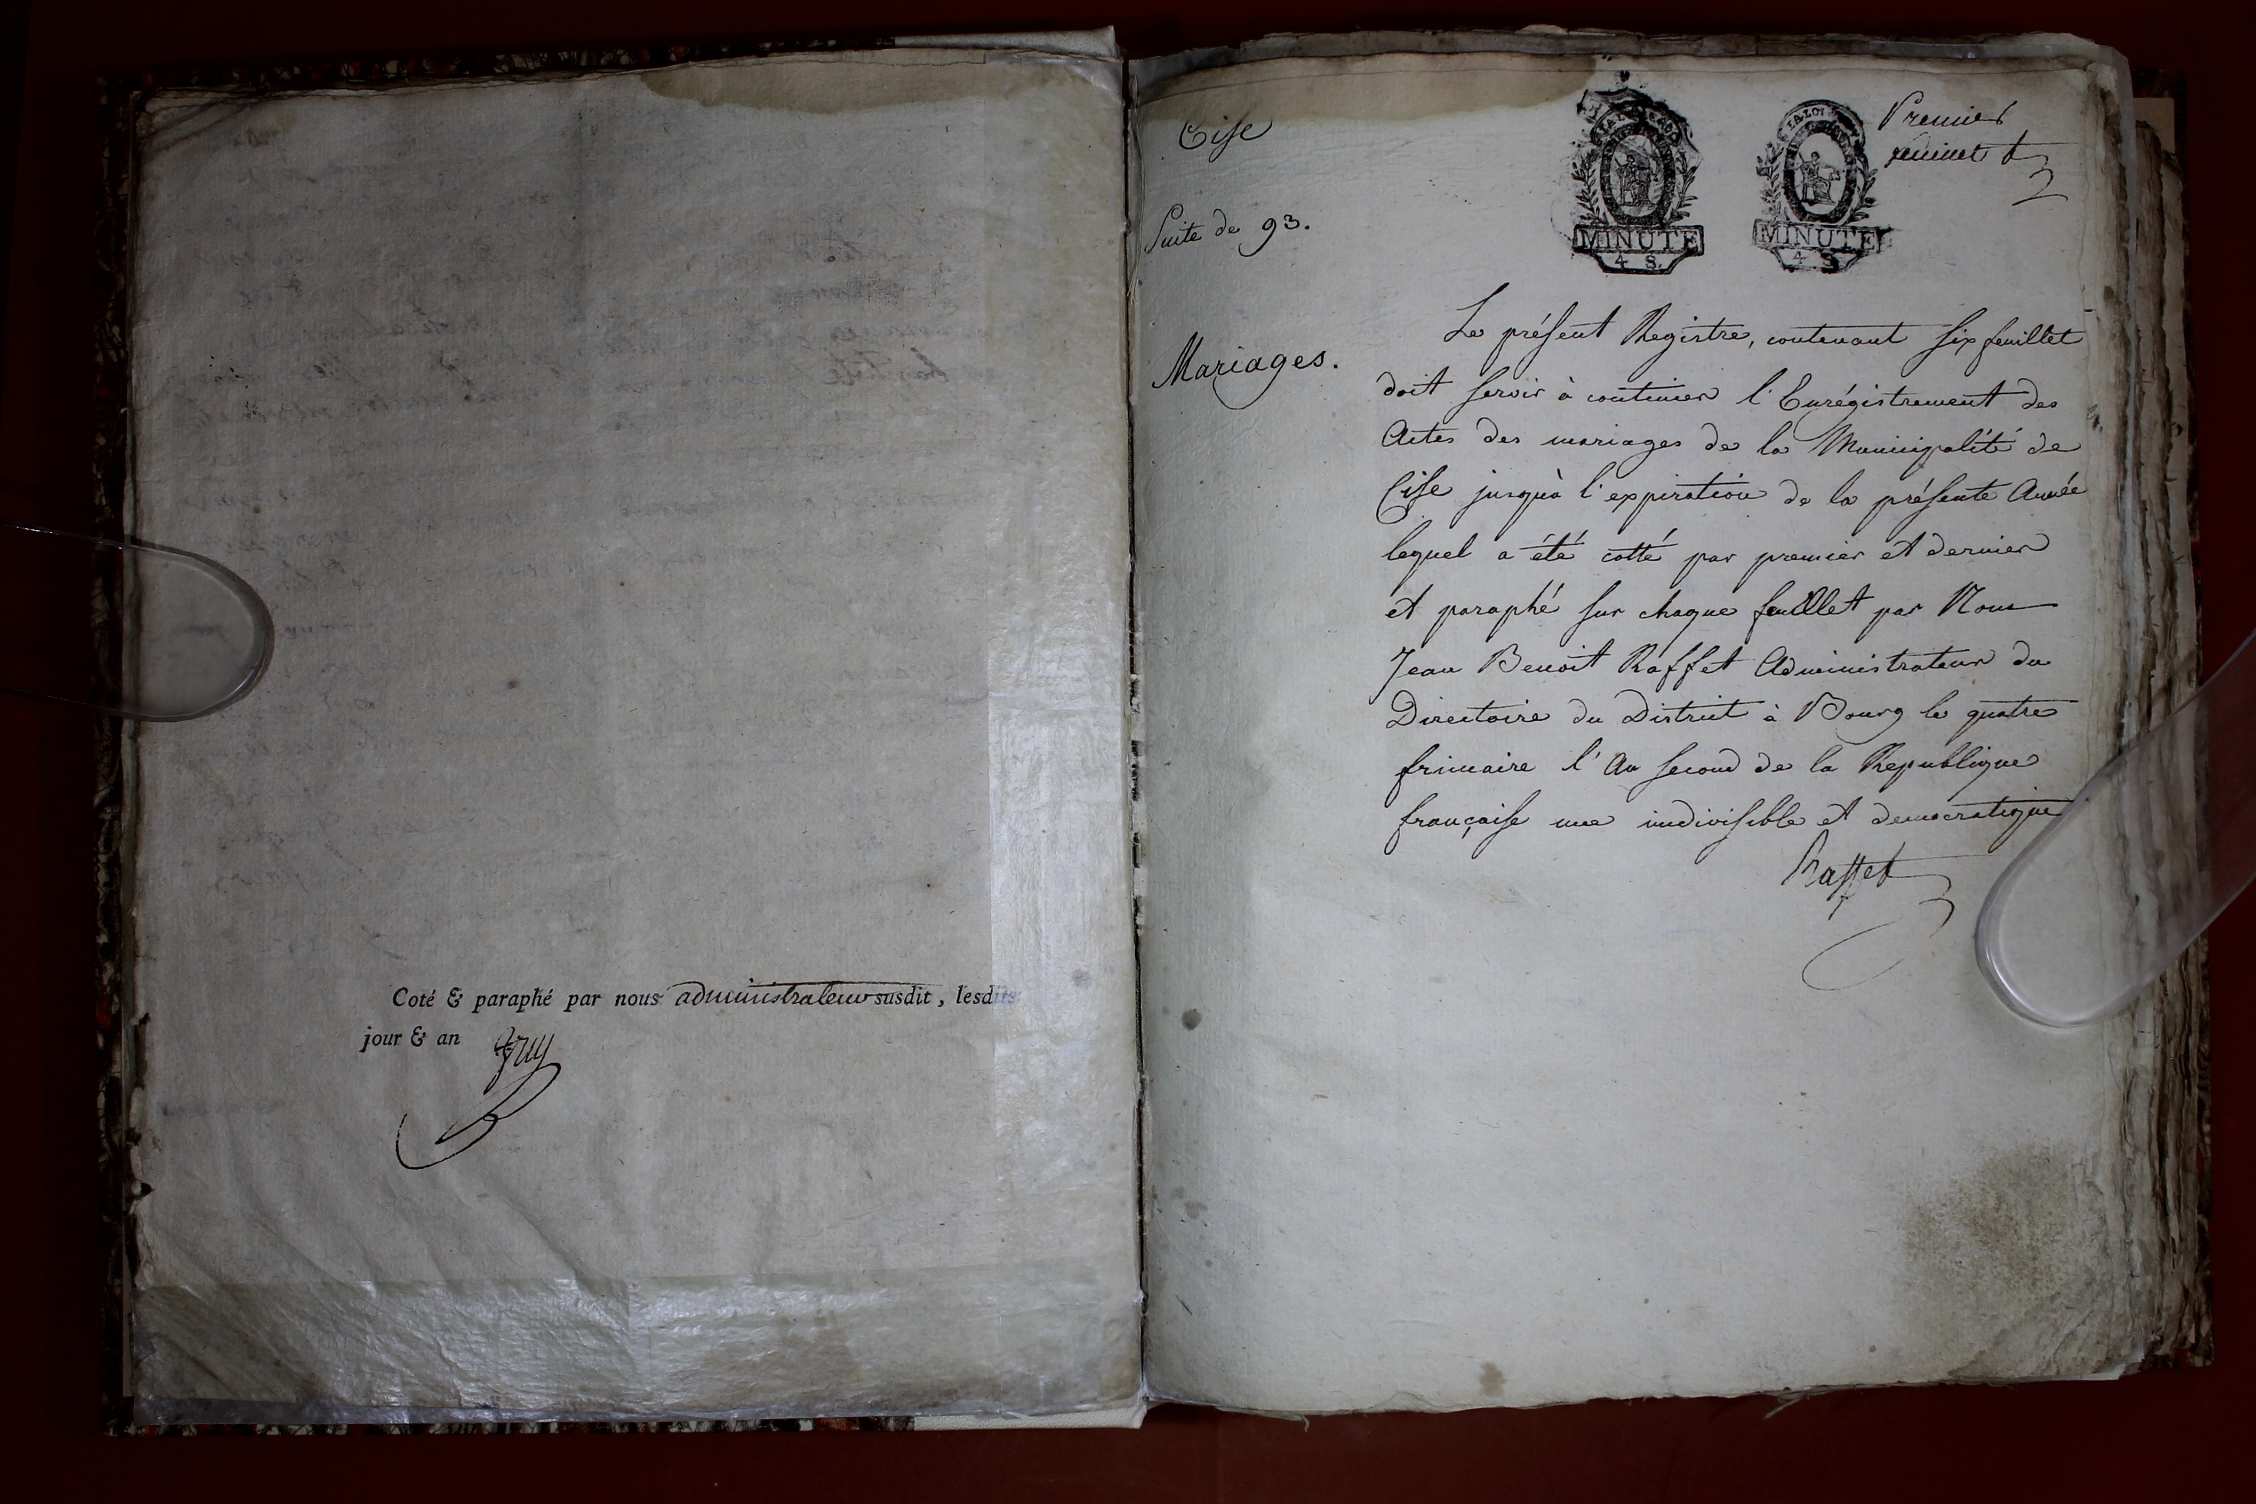 Coté & paraphé par nous administrateur susdit, lesdits
jour & an
Cise
Suite de 93.
Mariages.
LA LOI
MINUTE
4 S.
LA LOI
MINUTE
4 S.
Premier
feuillet
Le présent Registre, contenant six feuillet
doit servir à continuer l'Enrégistrement des
Actes des mariages de la Municipalité de
Cise jusqu'à l'expiration de la présente Année
lequel a été cotté par premier et dernier
et paraphé sur chaque feuillet par Nous
Jean Benoit Raffet Administrateur du
Directoire du District à Bourg le quatre
frimaire l'An second de la Republique
française une indivisible et democratique
Raffet